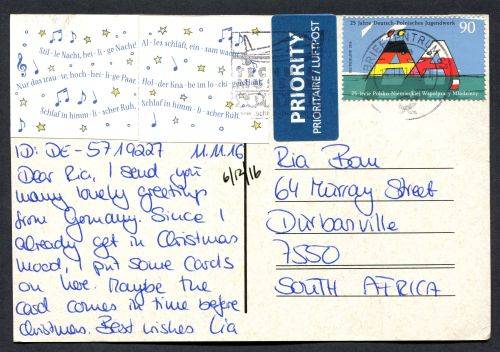 Stil-le Nacht, hei-li-ge Nacht! Al-les schläft, ein-sam wacht
Nur das trau-te, hoch-hei-li-ge Paar. Hol-der Kna-be im lo-cki-gen Haar,
Schlaf in himm-li-scher Ruh, Schlaf in himm-li-scher Ruh.
PRIORITY
PRIORITAIRE / LUFTPOST
25 Jahre Deutsch-Polnisches Jugendwerk
90
BRIEFZENTRUM
25-lecie Polsko-Niemieckiej Współpracy Młodzieży
ID: DE-5719227 11.11.16
Dear Ria, I send you
many lovely greetings
from Germany. Since I
already get in Christmas
mood, I put some cards
on here. Maybe the
card comes in time before
Christmas. Best wishes Lia
6/12/16
Ria
64 Murray Street
Durbanville
7550
SOUTH AFRICA